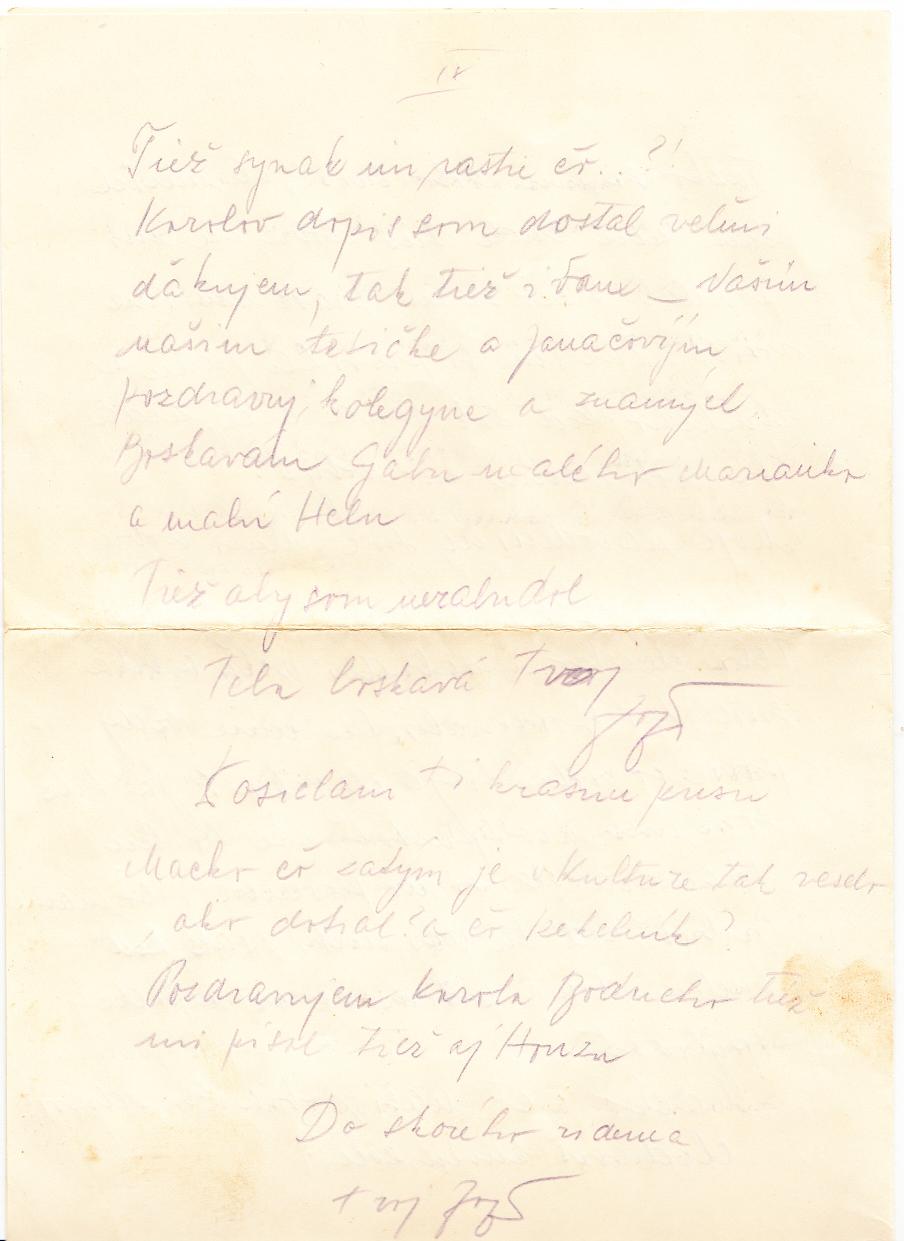 IV
Tiež synak mi rastie čo..?!
Karolov dopis som dostal velmi
dákujem, tak tiež i Vašim
našim tetičke a Janačovým
pozdravuj kolegyne a znamých
Boskavam Gabu malého Marianko
a malú Helu
Tiež aby som nezabudol
Teba boskavá Tvoj
Jožo
Posielam ti krasnu pusu
Macko čo zatým je v Kulture tak veselo
ako dotial? a čo Pekelník?
Pozdravujem Karola Bodneho tiež
mi písal tiež aj Honzu
Do skorého videna
tvoj Jožo